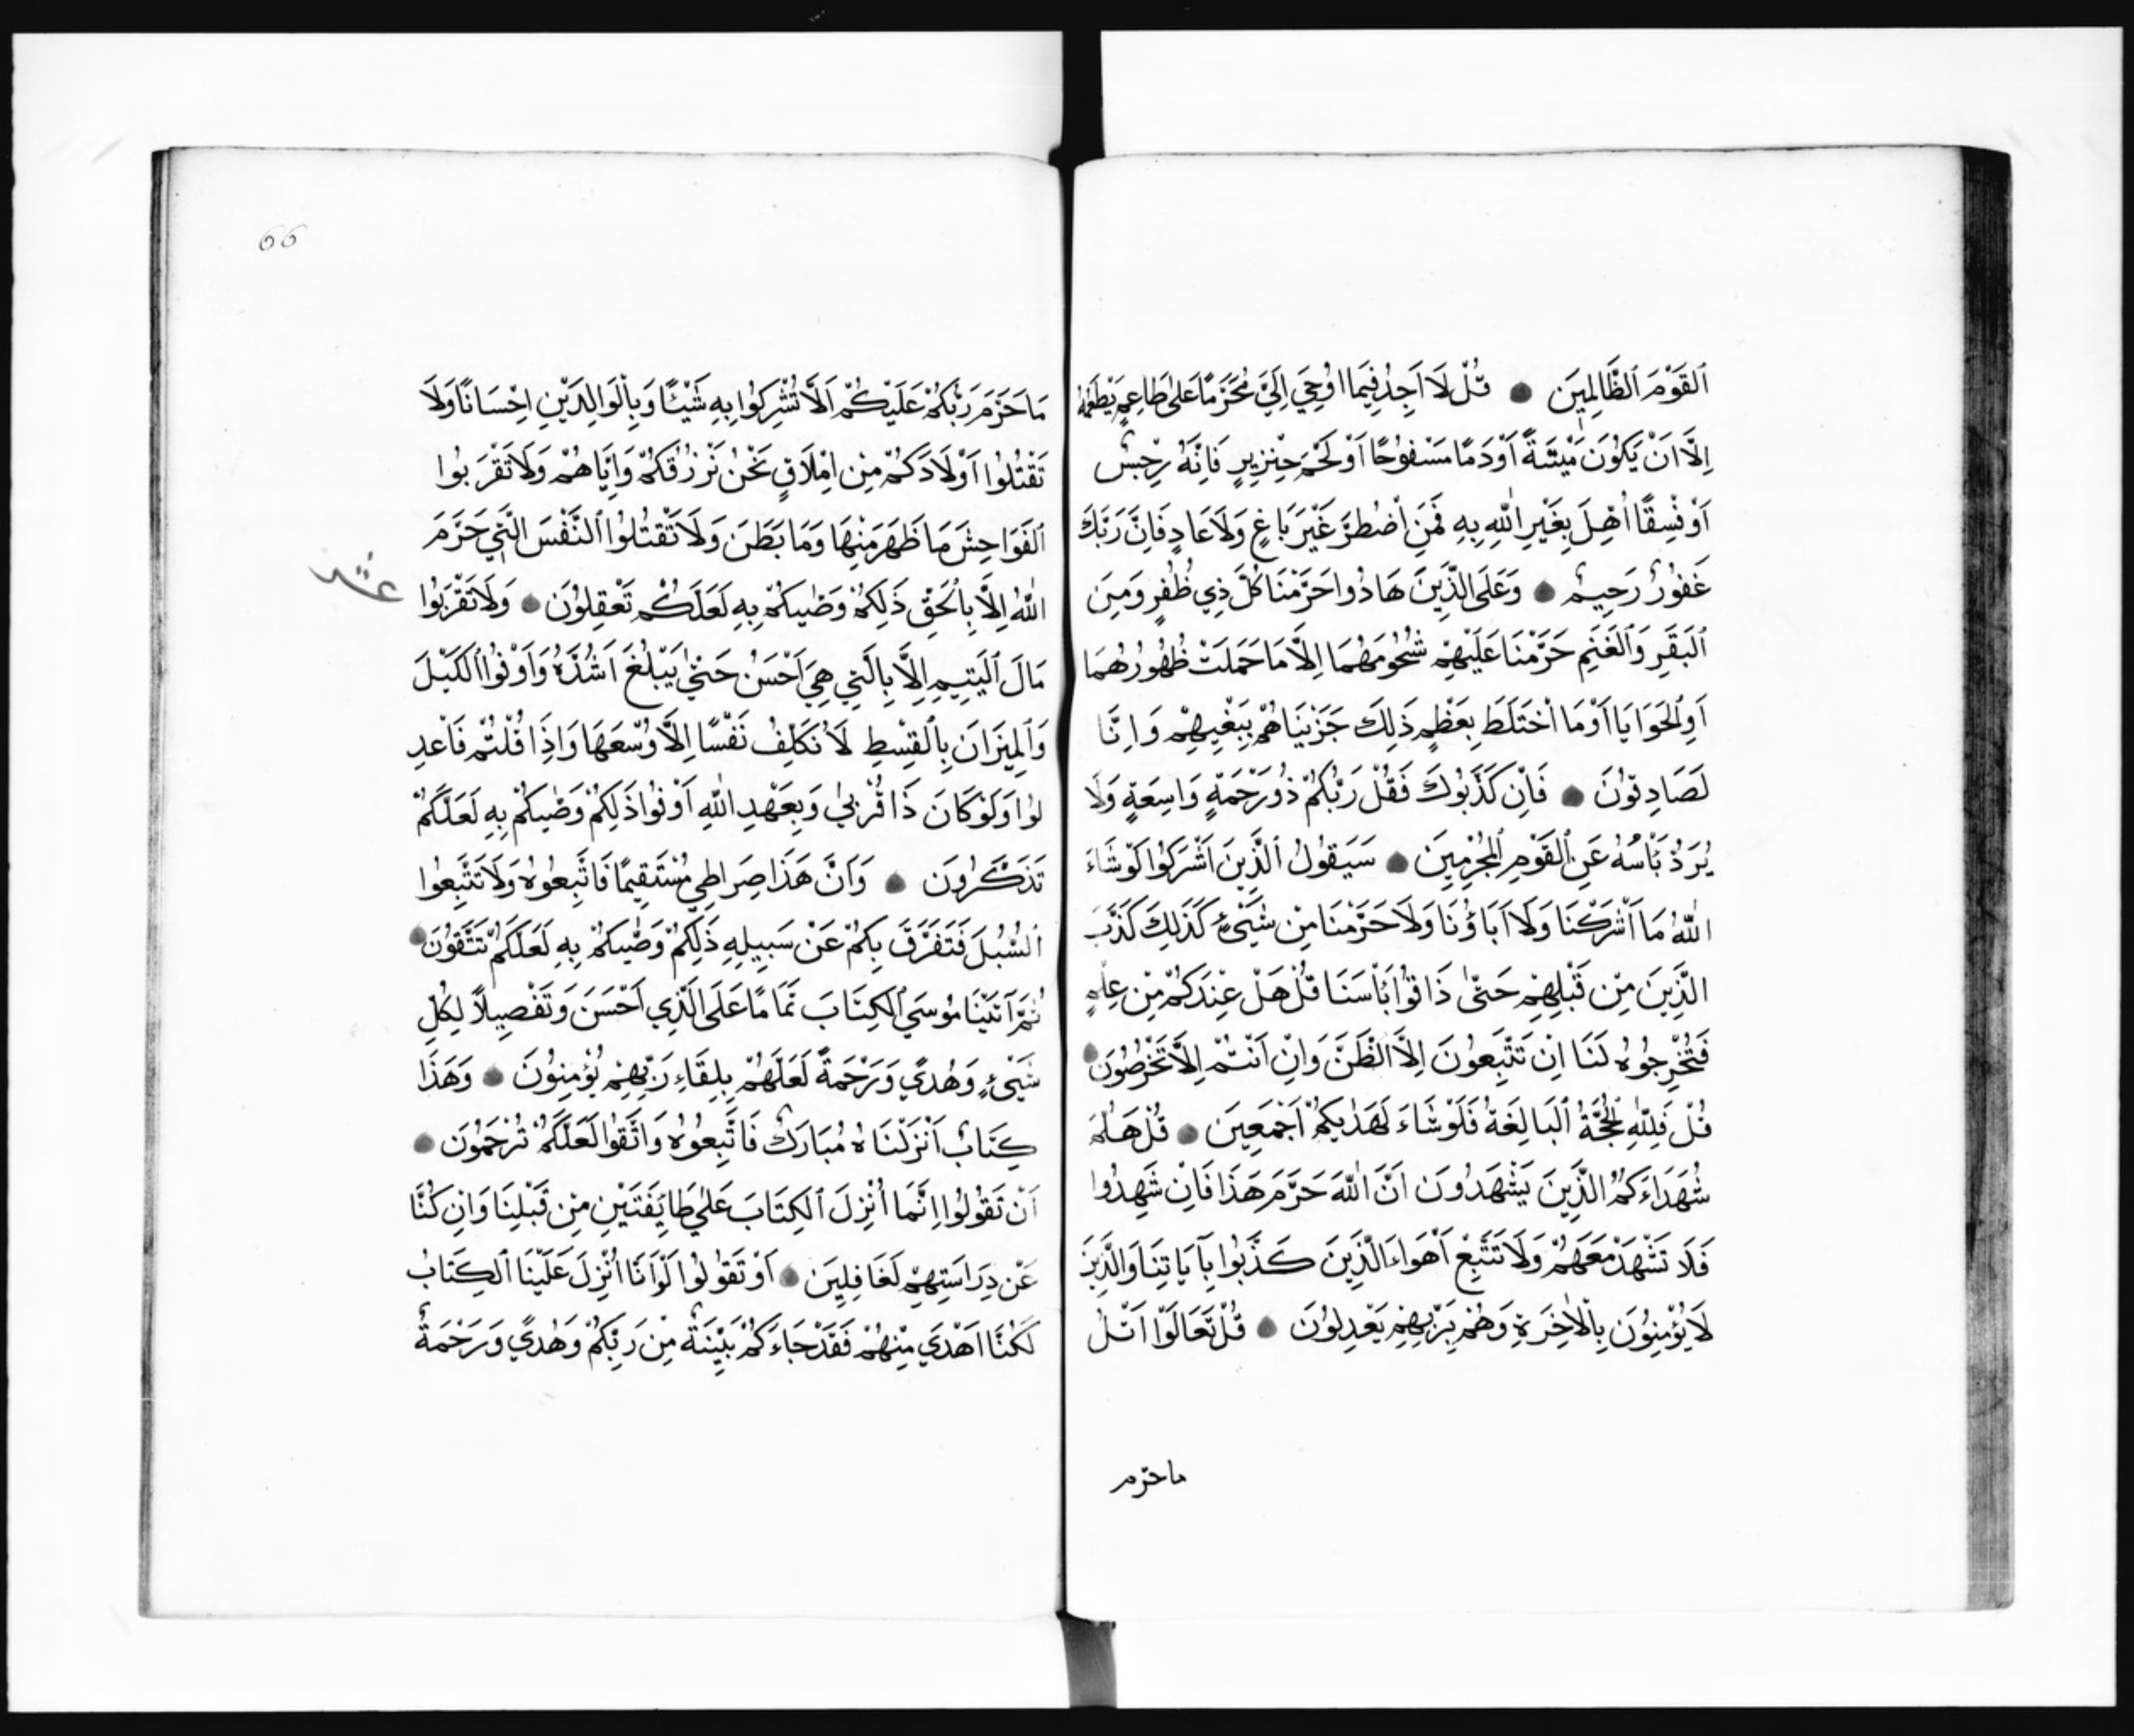 اَلقَوْمَ اَلظَّالِمِيَن ● قُلْ لَا اَجِدُ فِيمَا اُوُحِيَ اِلَيَّ مُحَرَّمًا عَلىٰ طَاعِمٍ يَطْعَمُهُ
اِلَّا اَنْ يَكُونَ مَيْتَةً اَوْ دَمًا مَسْفُوحًا اَوْ لَحْمَ خِنْزِيرٍ فَاِنَّهُ رِجْسٌ
اَوْ فِسِقًا اُهِلَ بِغَيْرِ اللهِ بِهِ فَمَنِ اضْطُرَّ غَيْرَ بَاغٍ وَلَا عَادٍ فَاِنَّ رَبَّكَ
غَفُورٌ رَحِيمٌ ● وَعَلَى الَّذِينَ هَادُوا حَرَّمْنَا كُلَّ ذِي ظُفُرٍ وَمِنَ
اَلبَقَرِ وَالغَنَمِ حَرَّمْنَا عَلَيْهِمْ شُحُومَهُمَا اِلَّا مَا حَمَلَتْ ظُهُورُهُمَا
اَوِ الحَوَايَا اَوْ مَا اخْتَلَطَ بِعَظْمٍ ذَلِكَ جَزَيْنَاهُمْ بِبَغْيِهِمْ وَاِنَّا
لَصَادِقُونَ ● فَاِنْ كَذَّبُوكَ فَقُلْ رَبُّكُمْ ذُو رَحْمَةٍ وَاسِعَةٍ وَلَا
يُرَدُّ بَأْسُهُ عَنِ القَوْمِ المُجْرِمِينَ ● سَيَقُولُ الَّذِينَ اَشْرَكُوا لَوْ شَاءَ
اللهُ مَا اَشْرَكْنَا وَلَا اَبَاؤُنَا وَلَا حَرَّمْنَا مِنْ شَيْءٍ كَذَلِكَ كَذَّبَ
الَّذِينَ مِنْ قَبْلِهِمْ حَتّىٰ ذَاقُوا بَأْسَنَا قُلْ هَلْ عِنْدَكُمْ مِنْ عِلْمٍ
فَتُخْرِجُوهُ لَنَا اِنْ تَتَّبِعُونَ اِلَّا الظَّنَّ وَاِنْ اَنْتُمْ اِلَّا تَخْرُصُونَ ●
قُلْ فَلِلّٰهِ الحُجَّةُ اَلبَالِغَةُ فَلَوْ شَاءَ لَهَدٰيكُمْ اَجْمَعِينَ ● قُلْ هَلُمَّ
شُهَدَاءَكُمُ الَّذِينَ يَشْهَدُونَ اَنَّ اللهَ حَرَّمَ هَذَا فَاِنْ شَهِدُوا
فَلَا تَشْهَدْ مَعَهُمْ وَلَا تَتَّبِعْ اَهْوَاءَ الَّذِينَ كَذَّبُوا بِآيَاتِنَا وَالَّذِينَ
لَا يُؤْمِنُونَ بِالْاٰخِرَةِ وَهُمْ بِرَبِّهِمْ يَعْدِلُونَ ● قُلْ تَعَالَوْا اَتْلُ
ماحرّم
66
مَا حَرَّمَ رَبُّكُمْ عَلَيْكُمْ اَلَّا تُشْرِكُوا بِهِ شَيْئًا وَبِالْوَالِدَيْنِ اِحْسَانًا وَلَا
تَقْتُلُوا اَوْلَادَكُمْ مِنْ اِمْلَاقٍ نَحْنُ نَرْزُقُكُمْ وَاِيَّاهُمْ وَلَا تَقْرَبُوا
اَلفَوَاحِشَ مَا ظَهَرَ مِنْهَا وَمَا بَطَنَ وَلَا تَقْتُلُوا النَّفْسَ الَّتِي حَرَّمَ
اللهُ اِلَّا بِالحَقِّ ذَلِكُمْ وَصّٰيكُمْ بِهِ لَعَلَّكُمْ تَعْقِلُونَ ● وَلَا تَقْرَبُوا
عشر
مَالَ اَليَتِيمِ اِلَّا بِالَّتِي هِيَ اَحْسَنُ حَتّىٰ يَبْلُغَ اَشُدَّهُ وَاَوْفُوا الكَيْلَ
وَالمِيزَانَ بِالقِسْطِ لَا نُكَلِّفُ نَفْسًا اِلَّا وُسْعَهَا وَاِذَا قُلْتُمْ فَاعْدِ
لُوا وَلَوْ كَانَ ذَا قُرْبىٰ وَبِعَهْدِ اللهِ اَوْفُوا ذَلِكُمْ وَصّٰيكُمْ بِهِ لَعَلَّكُمْ
تَذَكَّرُونَ ● وَاَنَّ هَذَا صِرَاطِي مُسْتَقِيمًا فَاتَّبِعُوهُ وَلَا تَتَّبِعُوا
اَلسُّبُلَ فَتَفَرَّقَ بِكُمْ عَنْ سَبِيلِهِ ذَلِكُمْ وَصّٰيكُمْ بِهِ لَعَلَّكُمْ تَتَّقُونَ ●
ثُمَّ آتَيْنَا مُوسَي الكِتَابَ تَمَامًا عَلَى الَّذِي اَحْسَنَ وَتَفْصِيلًا لِكُلِّ
شَيْءٍ وَهُدًي وَرَحْمَةً لَعَلَّهُمْ بِلِقَاءِ رَبِّهِمْ يُؤْمِنُونَ ● وَهَذَا
كِتَابٌ اَنْزَلْنَاهُ مُبَارَكٌ فَاتَّبِعُوهُ وَاتَّقُوا لَعَلَّكُمْ تُرْحَمُونَ ●
اَنْ تَقُولُوا اِنَّمَا اُنْزِلَ اَلكِتَابَ عَلىٰ طَايِفَتَيْنِ مِنْ قَبْلِنَا وَاِنْ كُنَّا
عَنْ دِرَاسَتِهِمْ لَغَافِلِينَ ● اَوْ تَقُولُوا لَوْ اَنَّا اُنْزِلَ عَلَيْنَا اَلكِتَابُ
لَكُنَّا اَهْدَي مِنْهُمْ فَقَدْ جَاءَكُمْ بَيِّنَةٌ مِنْ رَبِّكُمْ وَهُدًي وَرَحْمَةٌ